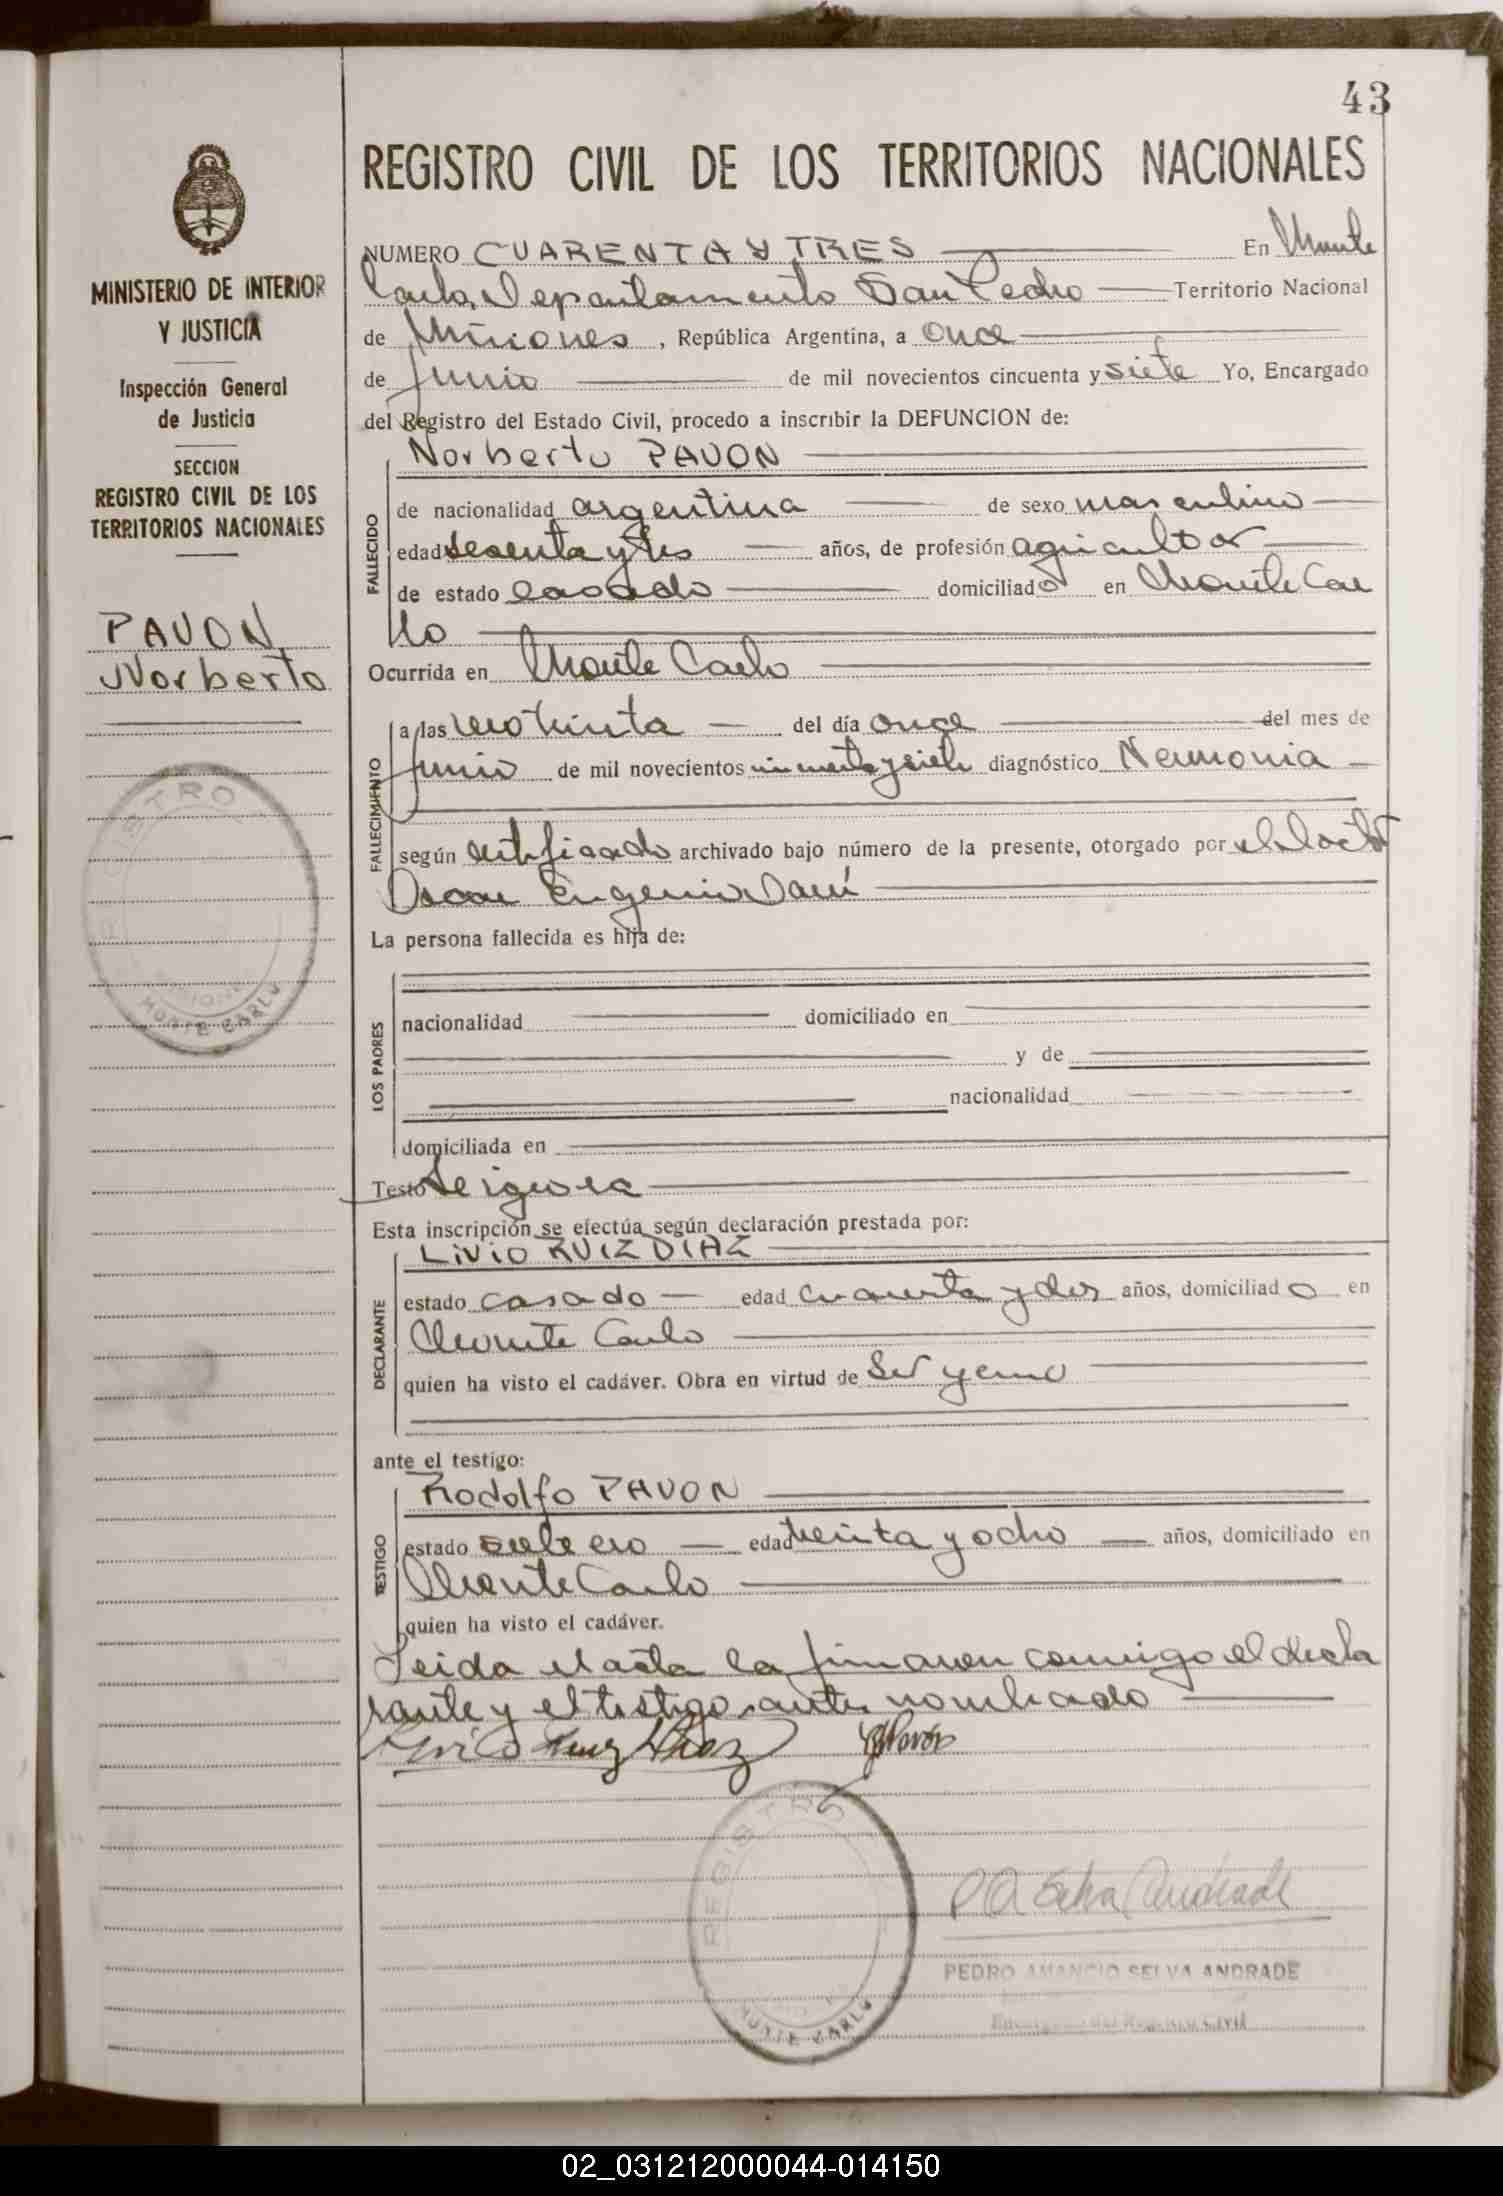 43
REGISTRO CIVIL DE LOS TERRITORIOS NACIONALES
MINISTERIO DE INTERIOR
Y JUSTICIA
Inspección General
de Justicia
SECCION
REGISTRO CIVIL DE LOS
TERRITORIOS NACIONALES
PAVON
Norberto
NUMERO CUARENTA Y TRES En Monte
Carlo, Departamento San Pedro Territorio Nacional
de Misiones, República Argentina, a once
de Junio de mil novecientos cincuenta y siete Yo, Encargado
del Registro del Estado Civil, procedo a inscribir la DEFUNCION de:
Norberto PAVON
FALLECIDO
de nacionalidad argentina de sexo masculino
edad sesenta y tres años, de profesión agricultor
de estado casado domiciliado en Monte Car
lo
Ocurrida en Monte Carlo
FALLECIMIENTO
a las cero treinta del día once del mes de
Junio de mil novecientos cincuenta y siete diagnóstico Neumonia
según certificado archivado bajo número de la presente, otorgado por el doctor
Oscar Eugenio
La persona fallecida es hija de:
LOS PADRES
nacionalidad domiciliado en
y de
nacionalidad
domiciliada en
Testó Se ignora
Esta inscripción se efectúa según declaración prestada por:
LIVIO RUIZ DIAZ
DECLARANTE
estado casado edad cuarenta y dos años, domiciliado en
Monte Carlo
quien ha visto el cadáver. Obra en virtud de Ser yerno
ante el testigo:
Rodolfo PAVON
TESTIGO
estado soltero edad treinta y ocho años, domiciliado en
Monte Carlo
quien ha visto el cadáver.
Leida el acta la firmaron conmigo el decla
rante y el testigo antes nombrado
Livio Ruiz Diaz Pavón
REGISTRO
MONTE CARLO
P A Selva Andrade
PEDRO AMANCIO SELVA ANDRADE
Encargado del Registro Civil
REGISTRO
MISIONES
MONTE CARLO
02_031212000044-014150